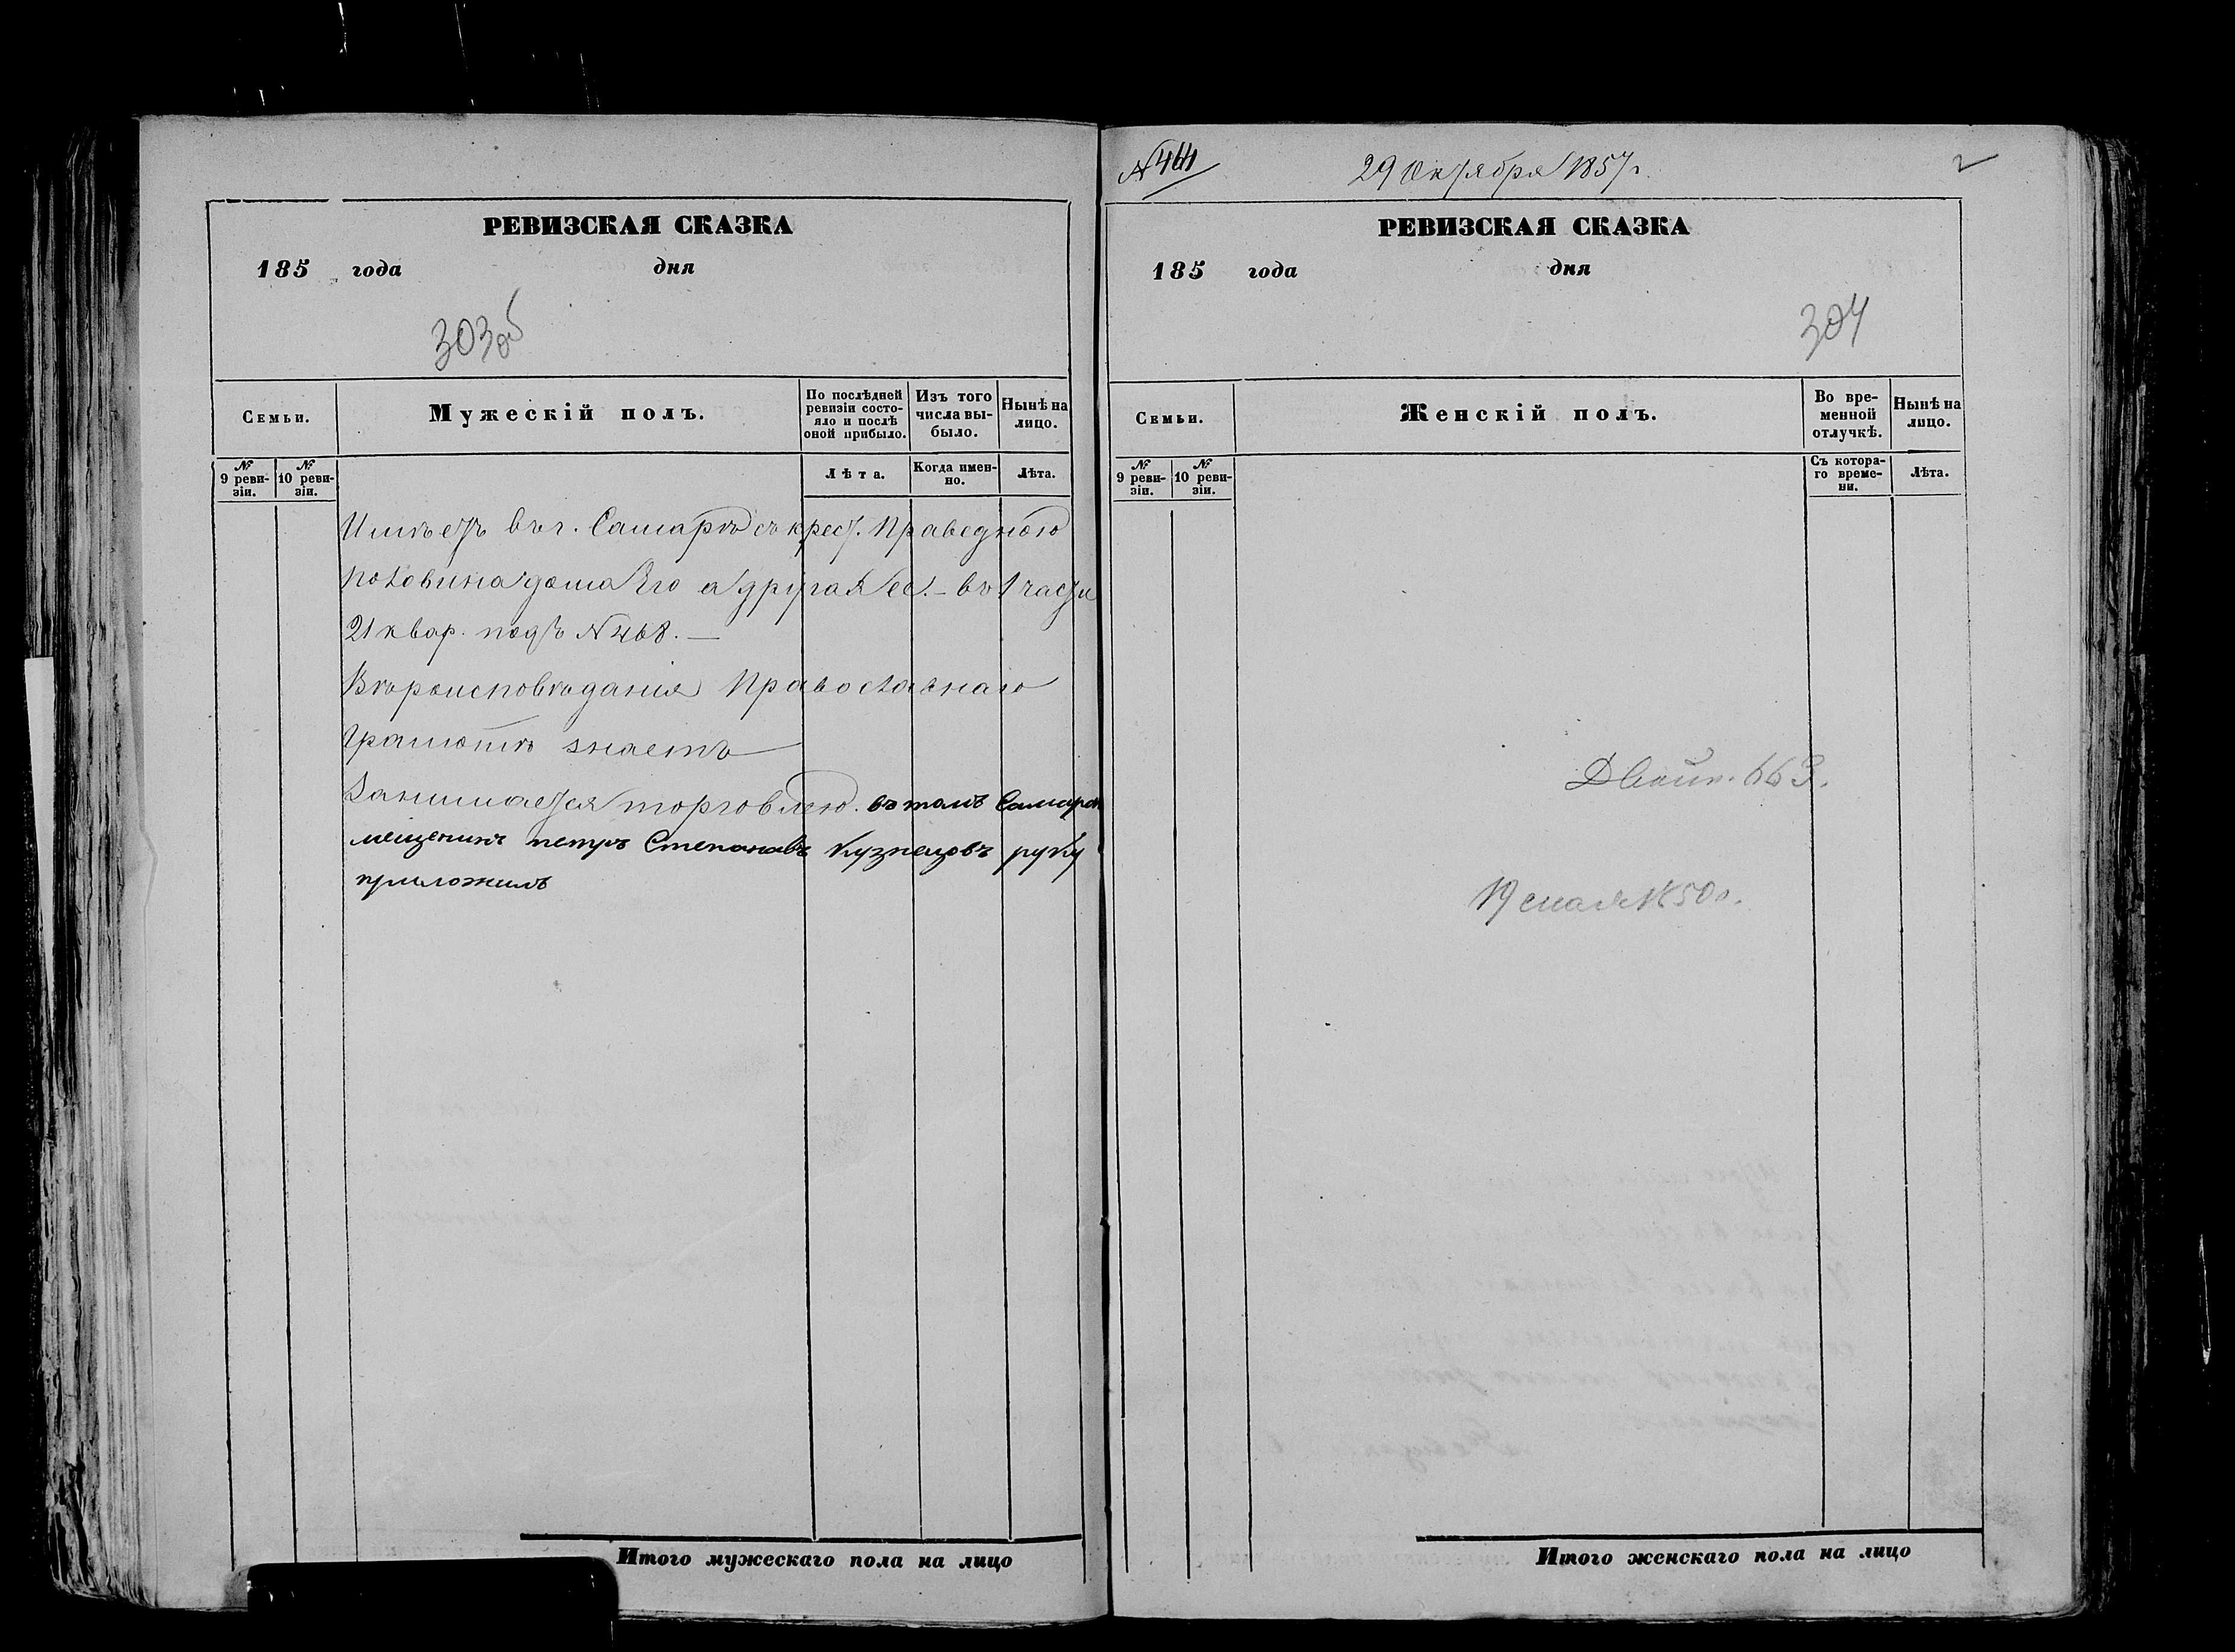 РЕВИЗСКАЯ СКАЗКА
185 года дня
303 об
Семьи.
Мужескій полъ.
По послѣдней ревизіи состо-
яло и послѣ
оной прибыло.
Изъ того
числа вы-
было.
Нынѣ на
лицо.
№
9 реви-
зіи.
№
10 реви-
зіи.
Лѣта.
Когда имен-
но.
Лѣта.
Имѣетъ въ г. Самарѣ съ крест. Праведною
половина дома Его а другая ее. – въ 1 части
21 квар. подъ N 468. —
Вѣроисповѣданія Православнаго
Грамотѣ знаетъ
Занимается торговлею. въ томъ Самарск
мещенинъ петръ Степанавъ Кузнецовъ руку
приложилъ
Итого мужескаго пола на лицо
29 Октября 1857 г.
2
РЕВИЗСКАЯ СКАЗКА
185 года дня
304
Семьи.
Женскій полъ.
Во вре-
менной
отлучкѣ.
Нынѣ на
лицо.
№
9 реви-
зіи.
№
10 реви-
зіи.
Съ котора-
го време-
ни.
Лѣта.
663.
Итого женскаго пола на лицо